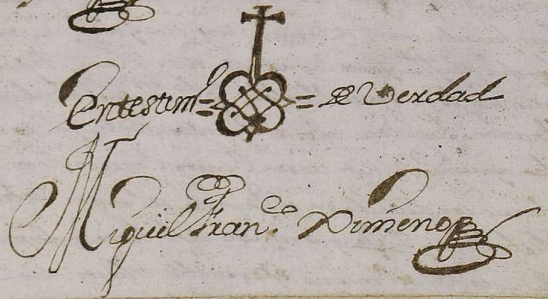 Entestim° = = de Verdad
Miguel Fran.co Ximeno